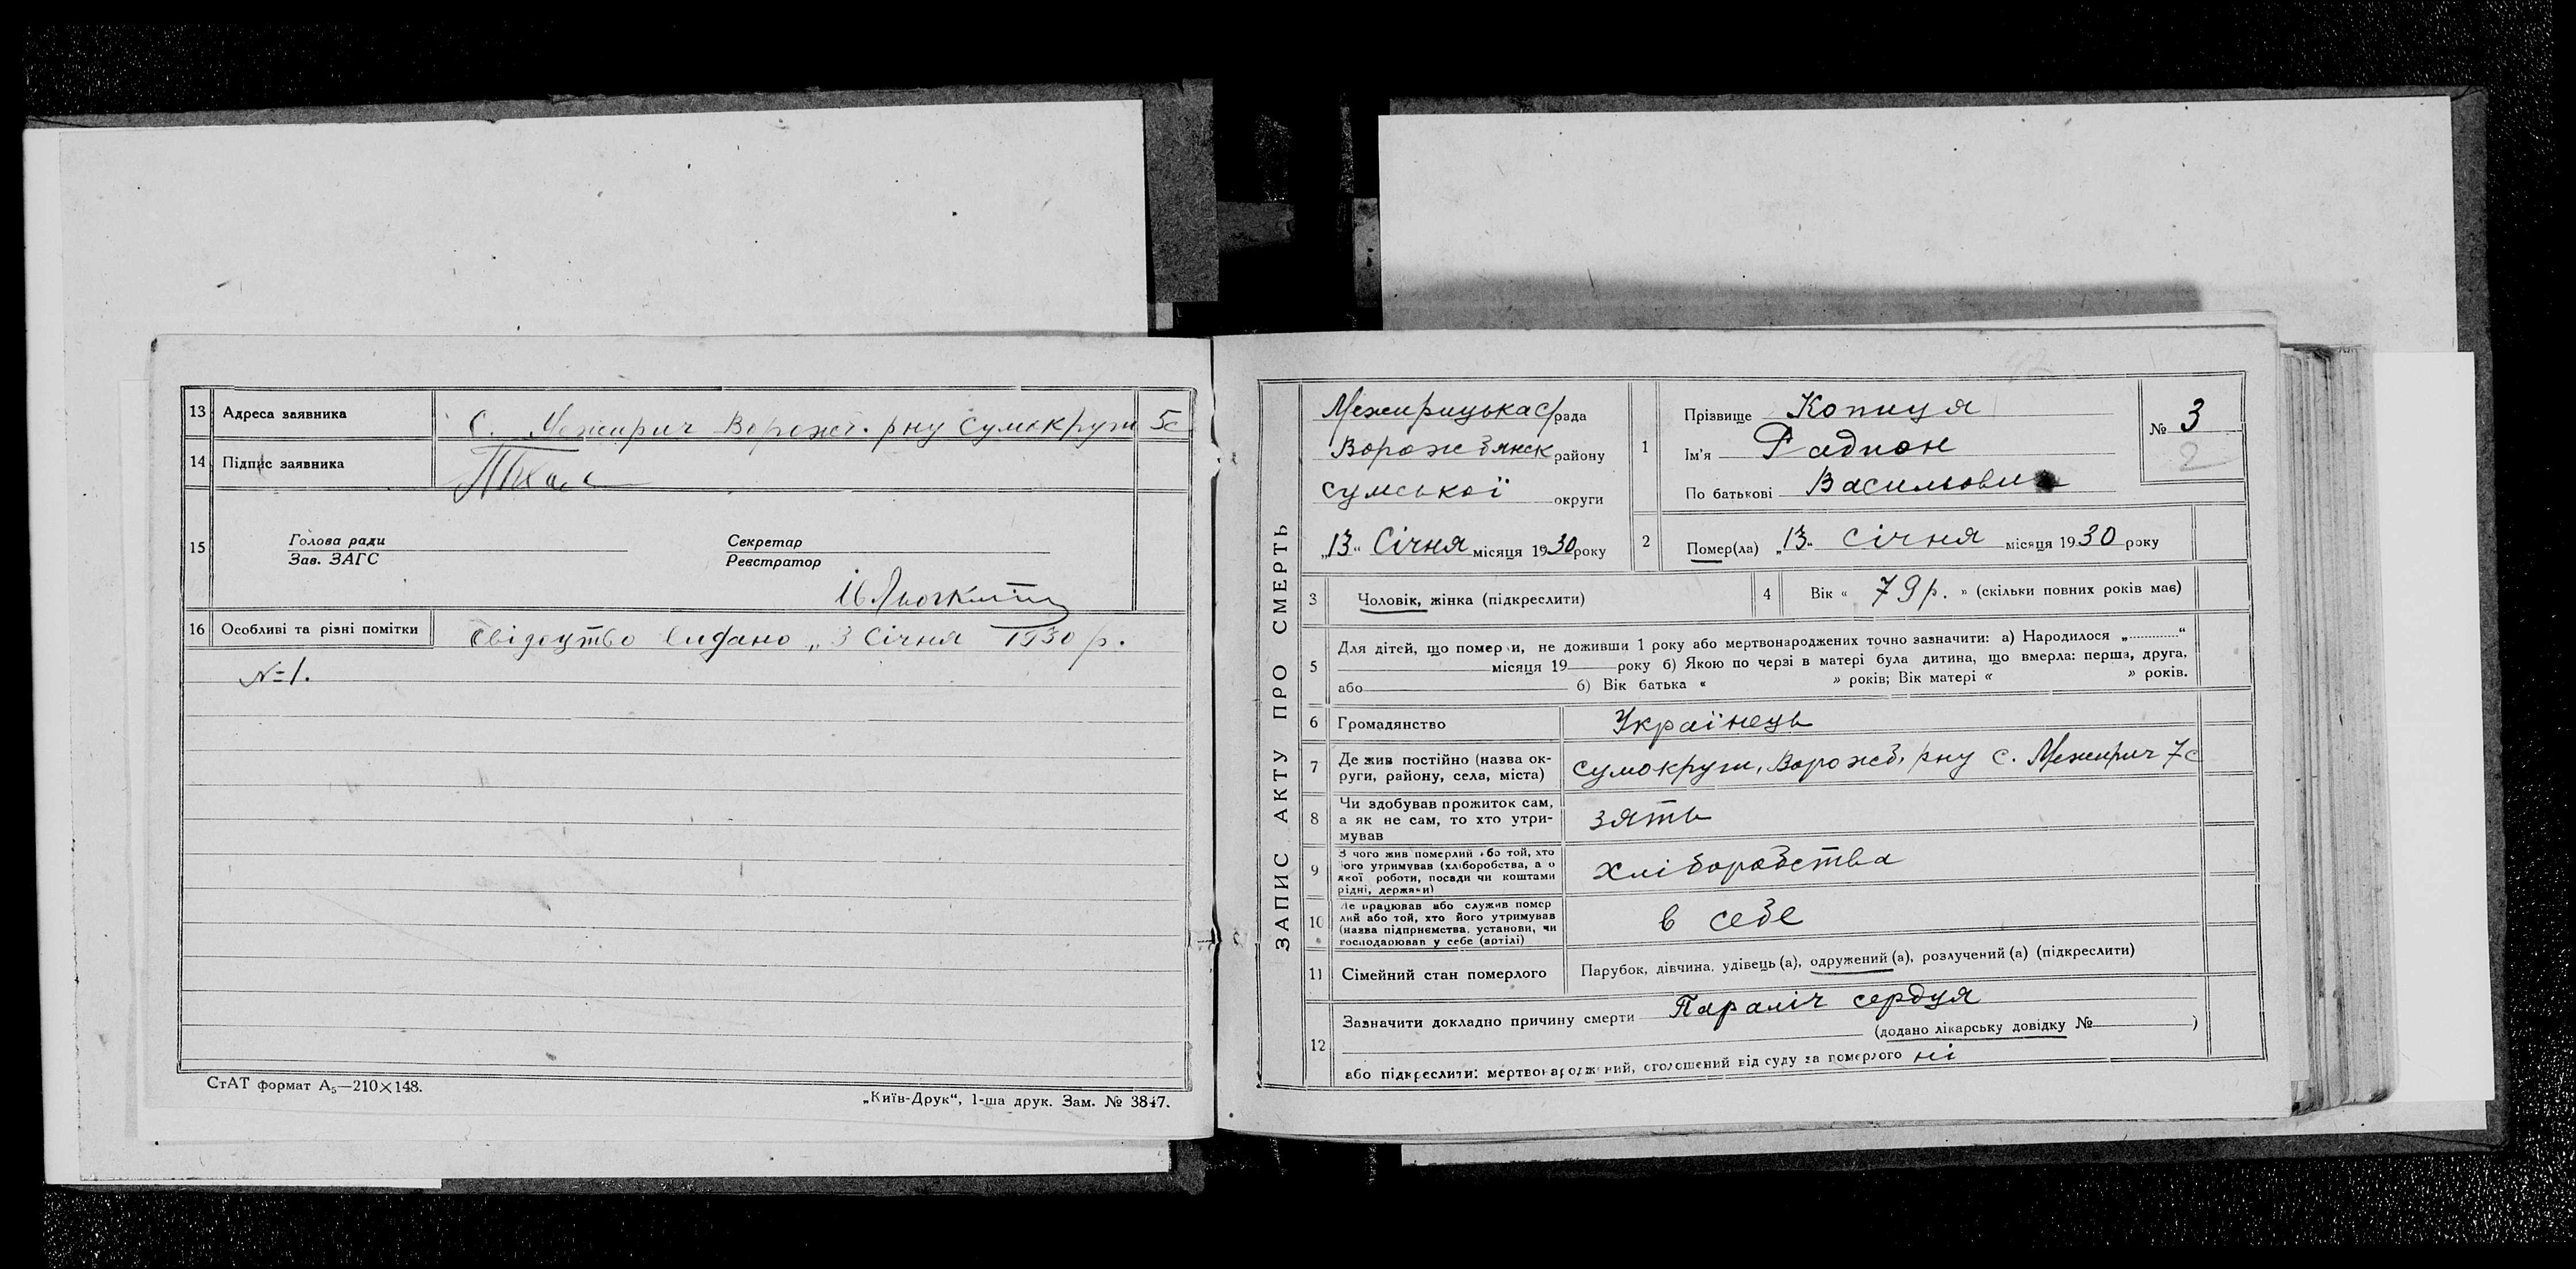 13 Адреса заявника С. Межирич Ворожб. рну Сумокруги 5с
14 Підпис заявника
15 Голова ради Секретар
Зав. ЗАГС Реєстратор
16 Особливі та різні помітки Свідоцтво видано „ 3 Січня 1930 р.
№ 1.
СтАТ формат А5—210×148.
„Київ-Друк“, 1-ша друк. Зам. № 3847.
ЗАПИС АКТУ ПРО СМЕРТЬ
Межирицька С/рада
Ворожбянск району
Сумської округи
„13“ Січня місяця 1930 року
1 Прізвище Копиця
Ім'я Радион
По батькові Васильович
№ 3
2
2 Помер(ла) „13“ Січня місяця 1930 року
3 Чоловік, жінка (підкреслити)
4 Вік « 79 р. » (скільки повних років має)
5 Для дітей, що померли, не доживши 1 року або мертвонароджених точно зазначити: а) Народилося „ “
місяця 19 року б) Якою по черзі в матері була дитина, що вмерла: перша, друга,
або б) Вік батька « » років; Вік матері « » років.
6 Громадянство Українець
7 Де жив постійно (назва ок-
руги, району, села, міста) Сумокруги, Ворожб. рну с. Межирич 7с
8 Чи здобував прожиток сам,
а як не сам, то хто утри-
мував зять
9 З чого жив померлий або той, хто
його утримував (хліборобства, а о
якої роботи, посади чи коштами
рідні, держави) хліборобства
10 Де працював або служив помер
лий або той, хто його утримував
(назва підприємства, установи, чи
господарював у себе (артілі) в себе
11 Сімейний стан померлого Парубок, дівчина, удівець(а), одружений(а), розлучений(а) (підкреслити)
12 Зазначити докладно причину смерти Параліч сердця
(додано лікарську довідку № )
або підкреслити: мертвонароджений, оголошений від суду за померлого ні